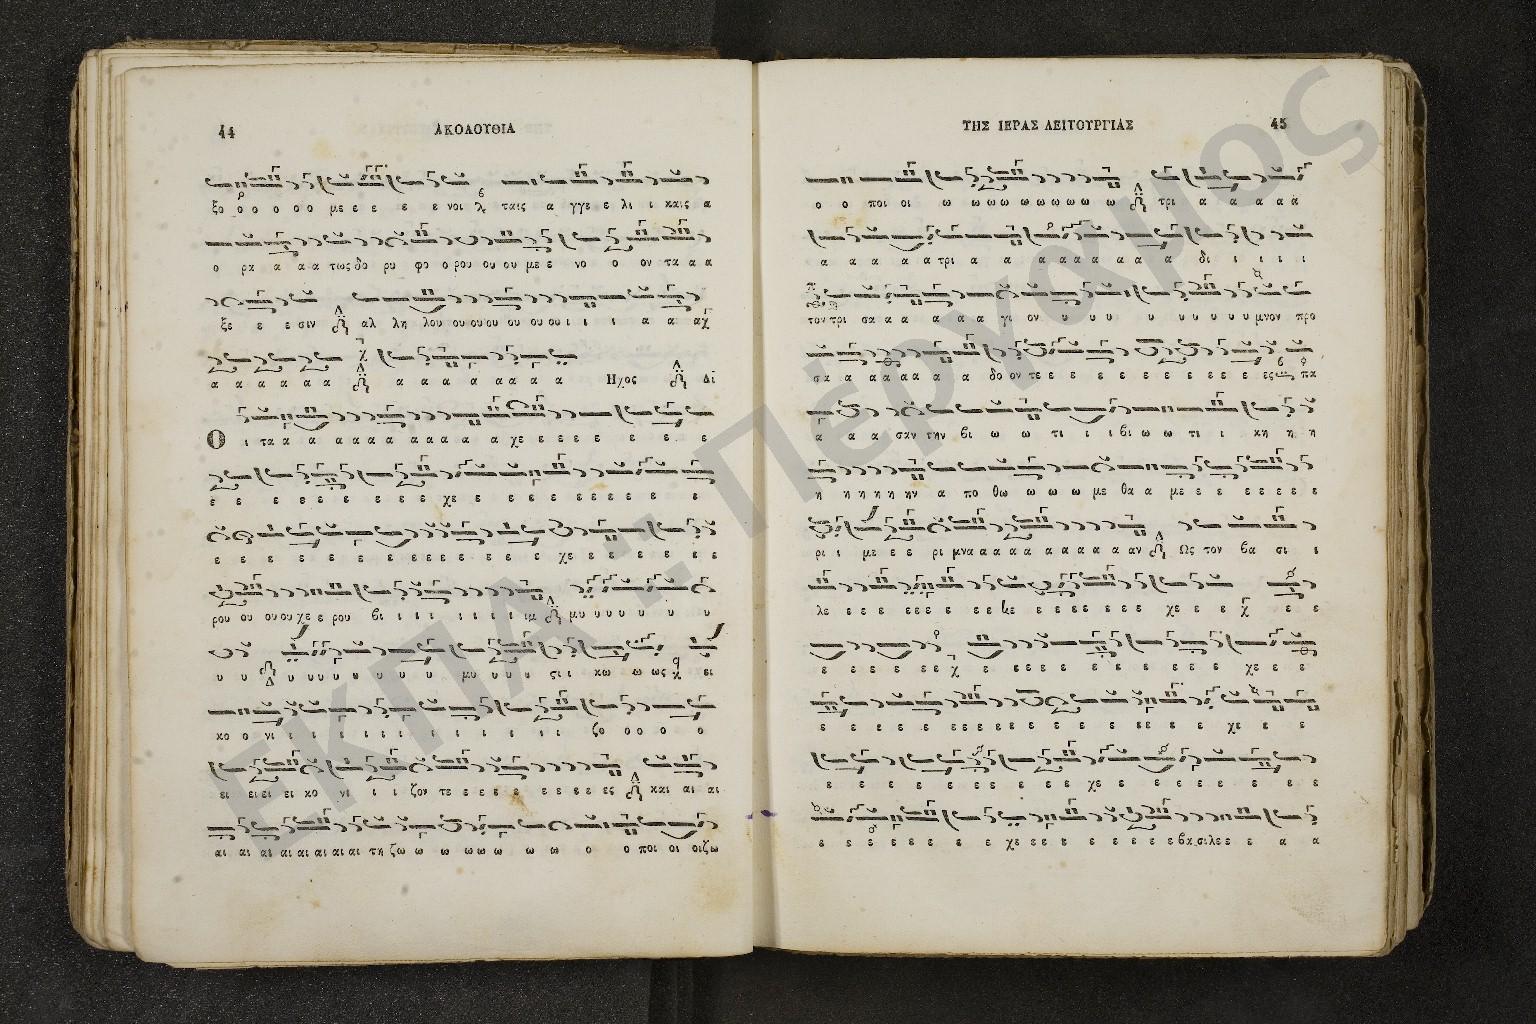 44
ΑΚΟΛΟΥΘΙΑ
ξο ο ο ο ο ο με ε ε ε ε νοι ταις α γγε ε λι ι καις α
ο ρα α α α τως δο ρυ φο ο ρου ου ου με ε νο ο ον τα α α
ξε ε ε σιν αλ λη λου ου ου ου ου ου ου ι ι ι α α αχ
α α α α α α α α α α α α α α Ηχος Δι
Ο ι τα α α α α α α α α α α α χε ε ε ε ε ε ε ε
ε ε ε ε ε ε ε ε ε χε ε ε ε ε ε ε ε ε ε ε ε
ε ε ε ε ε ε ε ε ε ε ε ε ε ε χε ε ε ε ε ε ε
ρου ου ου ου χε ε ρου βι ι ι ι ι ι ι ιμ μυ υ υ υ υ υ υ
υ υ υ υ υ υ υ υ υ υ υ μυ υ υ υ ςι ι κω ω ως ει
κο ο νι ι ι ι ι ι ι ι ι ι ι ι ι ζο ο ο ο ο
ει ει ει ει κο νι ι ι ζον τε ε ε ε ε ε ε ε ε ες και αι αι
αι αι αι αι αι αι αι αι τη ζω ω ω ω ω ω ω ω ο ο ποι οι οιζω
ΤΗΣ ΙΕΡΑΣ ΛΕΙΤΟΥΡΓΙΑΣ
45
ο ο ποι οι ω ω ω ω ω ω ω ω ω ω τρι α α α α α
α α α α α τρι α α α α α α α α α δι ι ι ι
τον τρι σα α α α α α γι ον υ υ υ υ υ υ υ υ μνον προ
σα α α α α α α α δο ον τε ε ε ε ε ε ε ε ε ε ε ε ες πα
α α α σαν την βι ω ω τι ι ι βι ω ω τι ι κη η η
η η η η η ην α πο θω ω ω ω με θα α με ε ε ε ε ε ε ε
ρι ι με ε ε ρι μνα α α α α α α α α α αν Ως τον βα σι ι
λε ε ε ε ε ε ε ε ε ε ε ε ε ε ε ε χε ε ε ε ε
ε ε ε ε ε ε ε ε ε ε ε ε ε ε ε ε ε χε ε ε
ε ε ε ε ε ε ε ε ε ε ε ε ε ε ε ε ε χε ε ε
ε ε ε ε ε ε ε ε ε χε ε ε ε ε ε ε ε ε ε
ε ε ε ε ε ε ε ε χε ε ε ε ε ε ε ε ε ε βα σι λε ε ε α α
ΕΚΠΑ - Πέργαμος